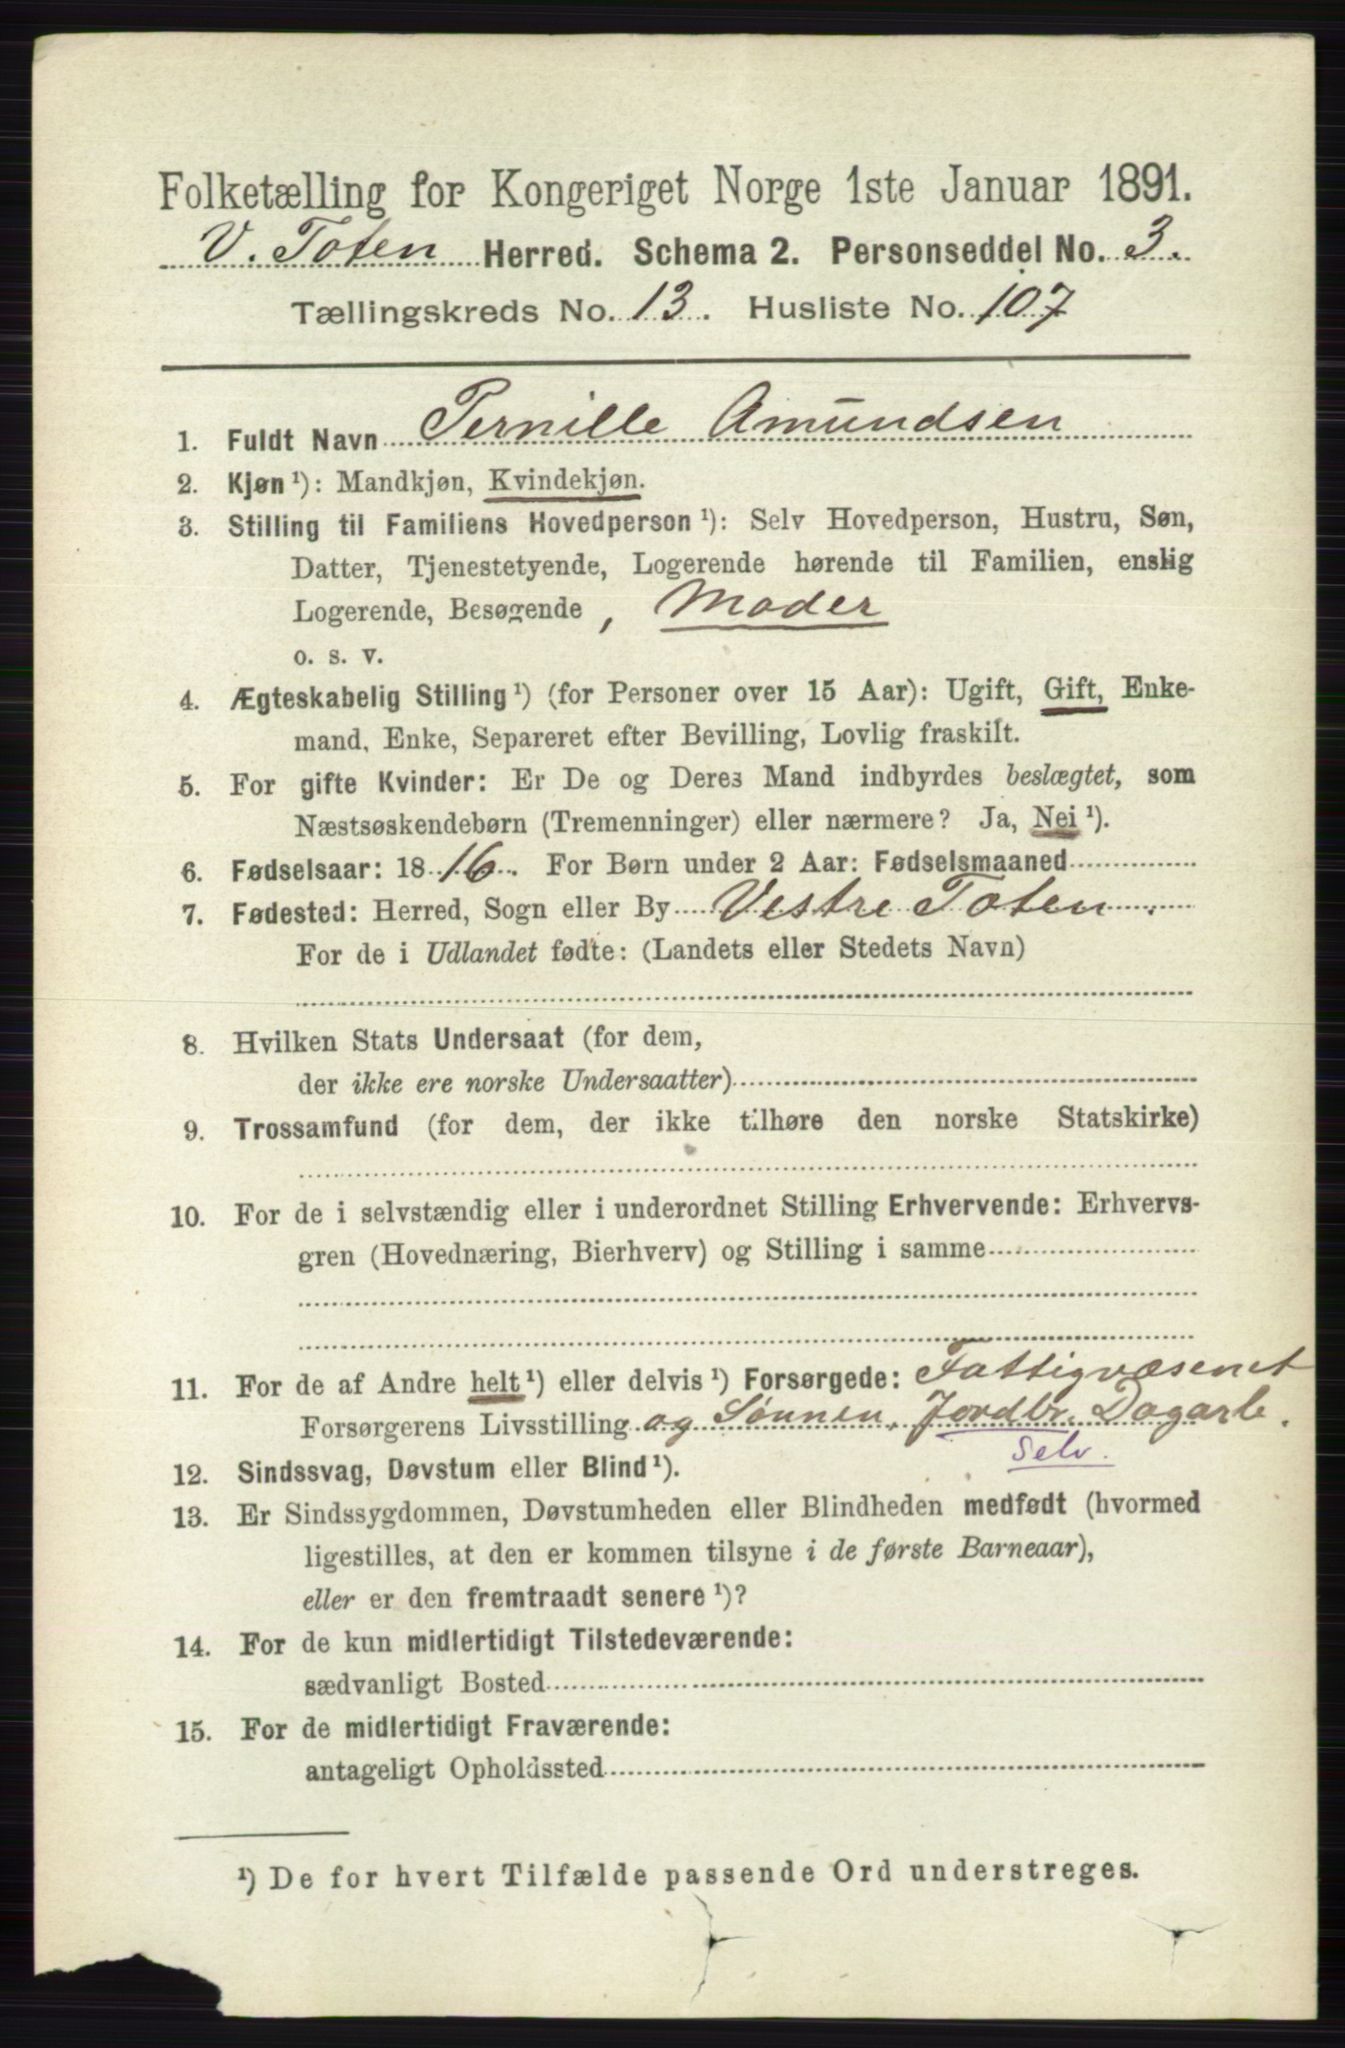 Folketælling for Kongeriget Norge 1ste Januar 1891.
V. Toten Herred. Schema 2. Personseddel No. 3.
Tællingskreds No. 13. Husliste No. 107
1. Fuldt Navn Pernille Amundsen
2. Kjøn ¹): Mandkjøn, Kvindekjøn.
3. Stilling til Familiens Hovedperson ¹): Selv Hovedperson, Hustru, Søn,
Datter, Tjenestetyende, Logerende hørende til Familien, enslig
Logerende, Besøgende , Moder
o. s. v.
4. Ægteskabelig Stilling ¹) (for Personer over 15 Aar): Ugift, Gift, Enke-
mand, Enke, Separeret efter Bevilling, Lovlig fraskilt.
5. For gifte Kvinder: Er De og Deres Mand indbyrdes beslægtet, som
Næstsøskendebørn (Tremenninger) eller nærmere? Ja, Nei ¹).
6. Fødselsaar: 1816. For Børn under 2 Aar: Fødselsmaaned
7. Fødested: Herred, Sogn eller By Vestre Toten.
For de i Udlandet fødte: (Landets eller Stedets Navn)
8. Hvilken Stats Undersaat (for dem,
der ikke ere norske Undersaatter)
9. Trossamfund (for dem, der ikke tilhøre den norske Statskirke)
10. For de i selvstændig eller i underordnet Stilling Erhvervende: Erhvervs-
gren (Hovednæring, Bierhverv) og Stilling i samme
11. For de af Andre helt ¹) eller delvis ¹) Forsørgede: Fattigvæsenet
Forsørgerens Livsstilling og Sønnen, Jordbr. Dagarb.
Selv.
12. Sindssvag, Døvstum eller Blind ¹).
13. Er Sindssygdommen, Døvstumheden eller Blindheden medfødt (hvormed
ligestilles, at den er kommen tilsyne i de første Barneaar),
eller er den fremtraadt senere ¹)?
14. For de kun midlertidigt Tilstedeværende:
sædvanligt Bosted
15. For de midlertidigt Fraværende:
antageligt Opholdssted
¹) De for hvert Tilfælde passende Ord understreges.